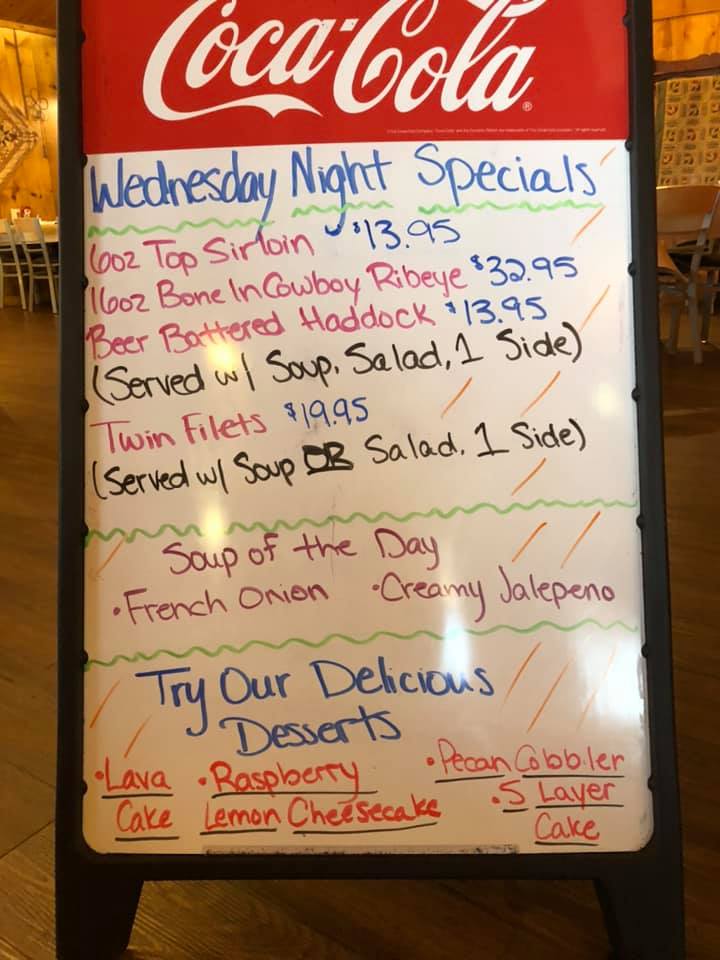 Coca-Cola
Wednesday Night Specials
6oz Top Sirloin $13.95
16oz Bone In Cowboy Ribeye $32.95
Beer Battered Haddock $13.95
(Served w/ Soup, Salad, 1 Side)
Twin Filets $19.95
(Served w/ Soup OR Salad, 1 Side)
Soup of the Day
•French Onion •Creamy Jalepeno
Try Our Delicious
Desserts
•Lava Cake
•Raspberry Lemon Cheesecake
•Pecan Cobbler
•5 Layer Cake